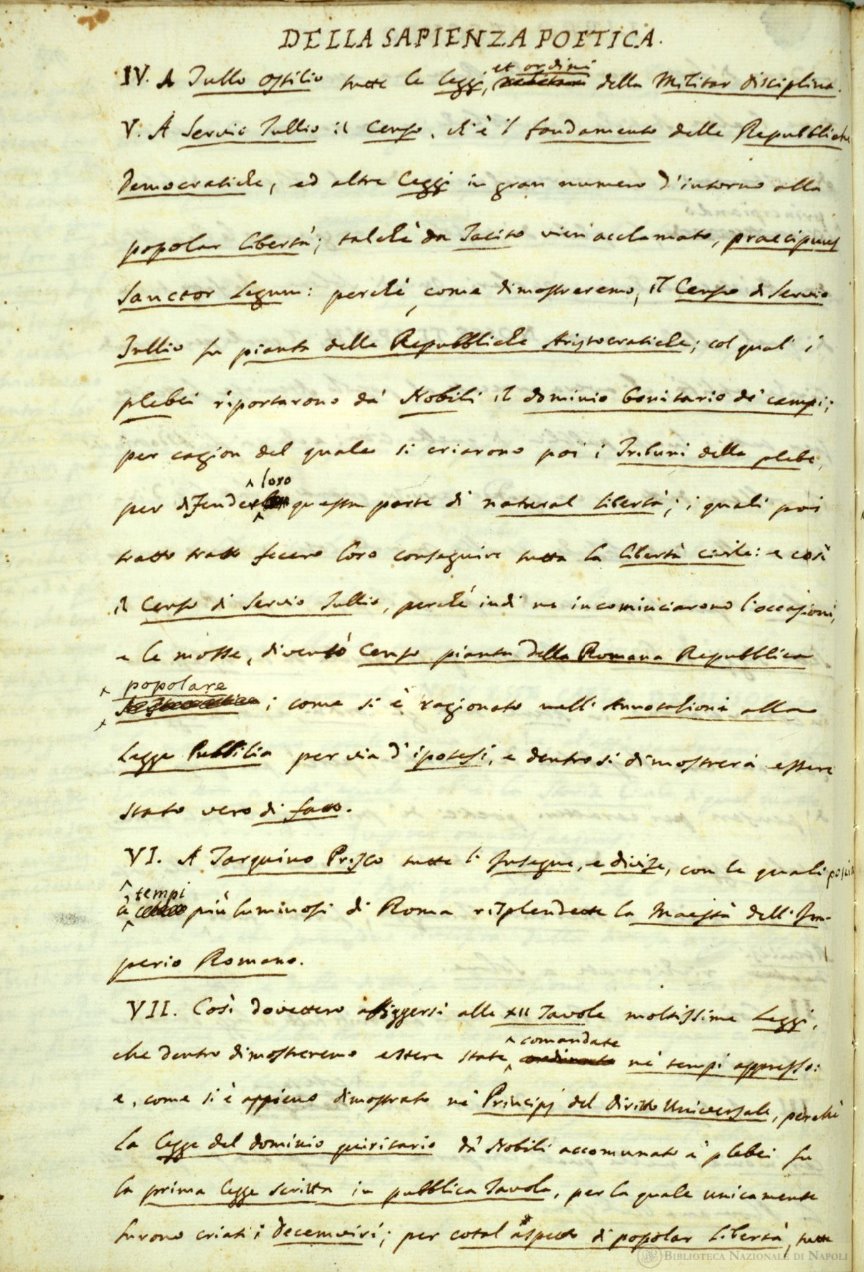 DELLA SAPIENZA POETICA.
IV. A Tullo Ostilio tutte le leggi, et ordini della Militar disciplina.
V. A Servio Tullio il Censo, ch'è 'l fondamento delle Repubbliche
Democratiche, ed altre leggi in gran numero d'intorno alla
popolar libertà; talchè da Tacito vien acclamato, praecipuus
Sanctor Legum: perchè, come dimostreremo, il Censo di Servio
Tullio fu pianta delle Repubbliche Aristocratiche; col qual i
plebei riportarono da' Nobili il dominio bonitario de' campi;
per cagion del quale si criarono poi i Tribuni della plebe,
per difender loro questa parte di natural libertà; i quali poi
tratto tratto fecero loro conseguire tutta la libertà civile: e così
il Censo di Servio Tullio, perchè indi ne incominciarono l'occasioni,
e le mosse, diventò Censo pianta della Romana Repubblica
popolare; come si è ragionato nell'Annotasione alla
Legge Pubblilia per via d'ipotesi, e dentro si dimostrerà essere
stato vero di fatto.
VI. A Tarquino Prisco tutte l'Insegne, e divise, con le quali poscia
a' tempi più luminosi di Roma risplendette la Maestà dell'Im-
perio Romano.
VII. Così dovettero affiggersi alle XII Tavole moltissime Leggi,
che dentro dimostreremo essere state comandate ne' tempi appresso:
e, come si è appieno dimostrato ne' Principj del Diritto Universale, perchè
la legge del dominio quiritario da' Nobili accomunato a' plebei fu
la prima legge scritta in pubblica Tavola, per la quale unicamente
furono criati i decemviri; per cotal aspetto di popolar libertà, tutte
BIBLIOTECA NAZIONALE DI NAPOLI